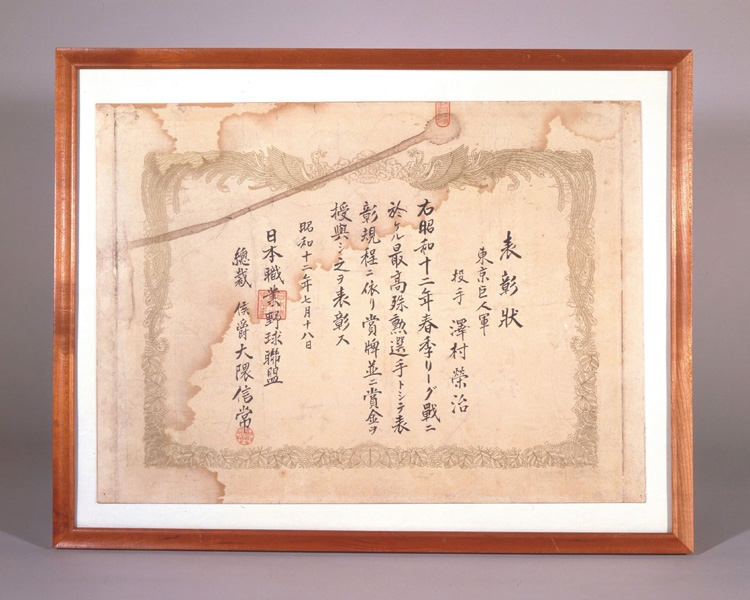 表彰状
東京巨人軍
投手 澤村榮治
右昭和十二年春季リーグ戰ニ
於ケル最高殊勲選手トシテ表
彰規程ニ依リ賞牌並ニ賞金ヲ
授與シ之ヲ表彰ス
昭和十二年七月十八日
日本職業野球聯盟
總裁 侯爵 大隈信常